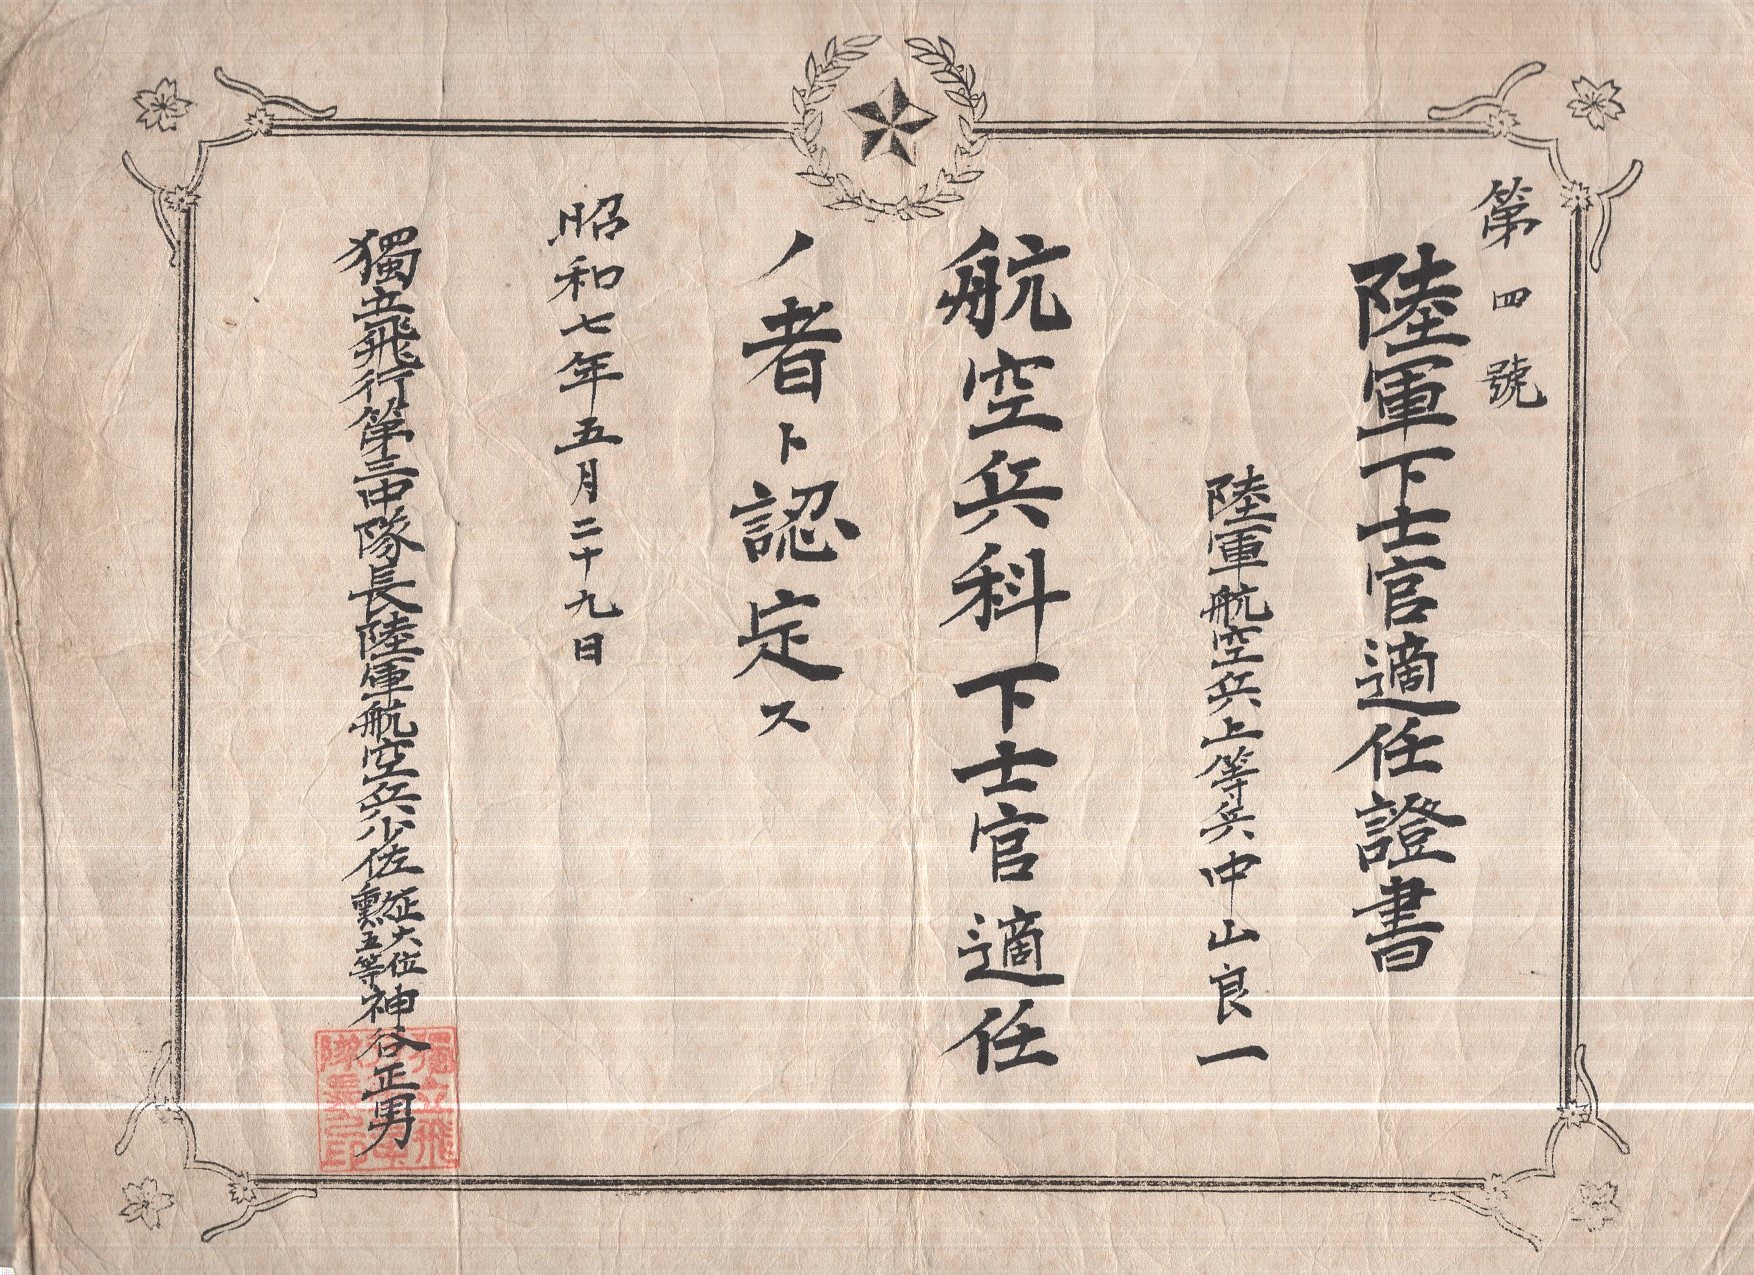 第四號
陸軍下士官適任證書
陸軍航空兵上等兵中山良一
航空兵科下士官適任
ノ者ト認定ス
昭和七年五月二十九日
獨立飛行第三中隊長陸軍航空兵少佐
正六位
勲五等
神谷正男
獨立飛
隊長之印